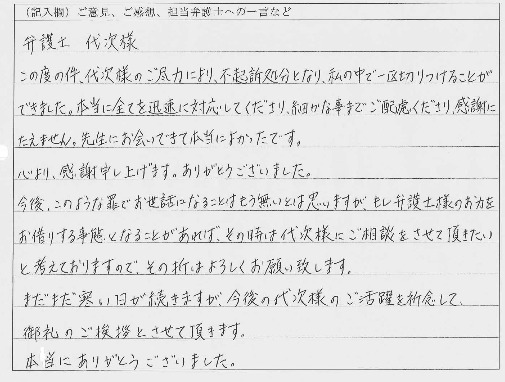 (記入欄)ご意見、ご感想、担当弁護士への一言など
弁護士 代次様
この度の件、代次様のご尽力により、不起訴処分となり、私の中で一区切りつけることが
できました。本当に全てを迅速に対応してくださり、細かな事までご配慮くださり、感謝に
たえません。先生にお会いできて本当によかったです。
心より、感謝申し上げます。ありがとうございました。
今後、このような罪でお世話になることはもう無いとは思いますが、もし弁護士様のお力を
お借りする事態となることがあれば、その時は代次様にご相談をさせて頂きたい
と考えておりますので、その折はよろしくお願い致します。
まだまだ寒い日が続きますが、今後の代次様のご活躍を祈念して、
御礼のご挨拶とさせて頂きます。
本当にありがとうございました。